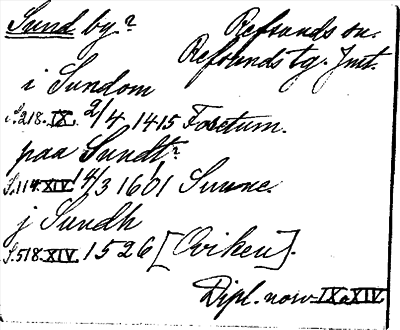 Sund by? Refsunds sn.
Refsunds tg. Jmt.
i Sundom
S. 218. IX. 2/4 1415 Fosetum.
paa Sundt?
S. 114. XIV. 14/3 1601 Sunne.
j Sundh
S. 518. XIV. 1526 [Oviken].
Dipl. norv. IX o XIV.